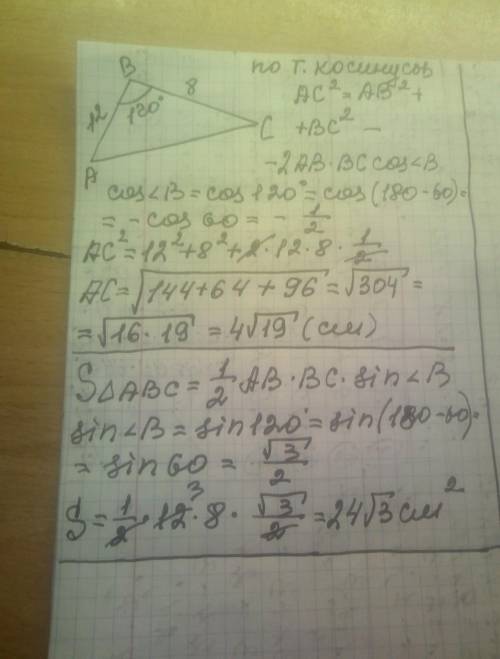 B
8
по т. косинусов
12
120°
AC² = AB² +
C
+ BC² -
A
- 2AB·BC cos∠B
cos∠B = cos 120° = cos(180-60) =
= - cos 60 = - 1/2
AC² = 12² + 8² + 2·12·8·1/2
AC = √144+64+96 = √304 =
= √16·19 = 4√19 (см)
S△ABC = 1/2 AB·BC·sin∠B
sin∠B = sin 120° = sin(180-60) =
= sin 60 = √3/2
S = 1/2·12³·8·√3/2 = 24√3 см²